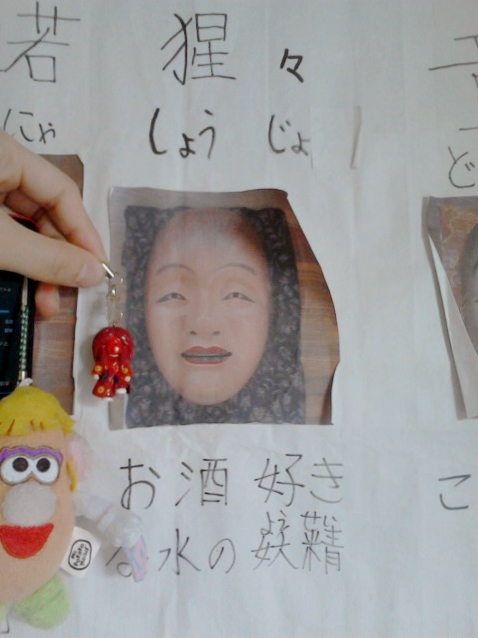 若 猩々
にゃ しょうじょ
ど
お酒好き
な水の妖精
よう
こ